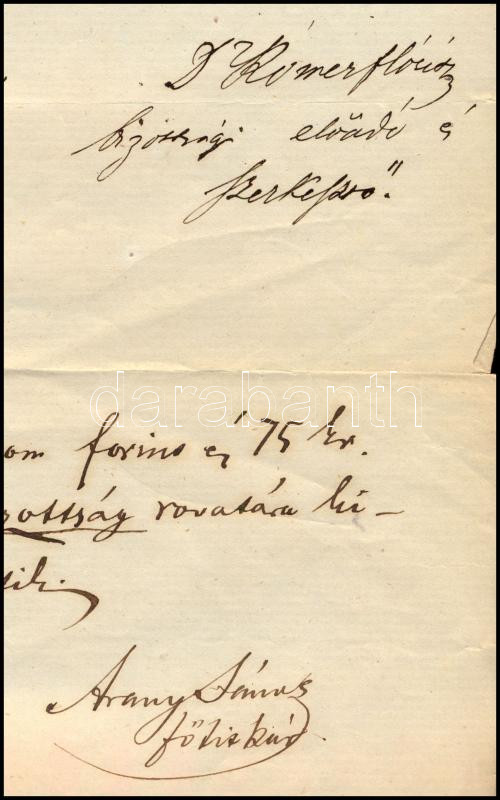 Dr Rómer Flóris
bizottsági előadó és
szerkesztő."
darabanth
om forint és 75 kr.
zottság rovatára ki-
tik.
Arany János
főtitkár.